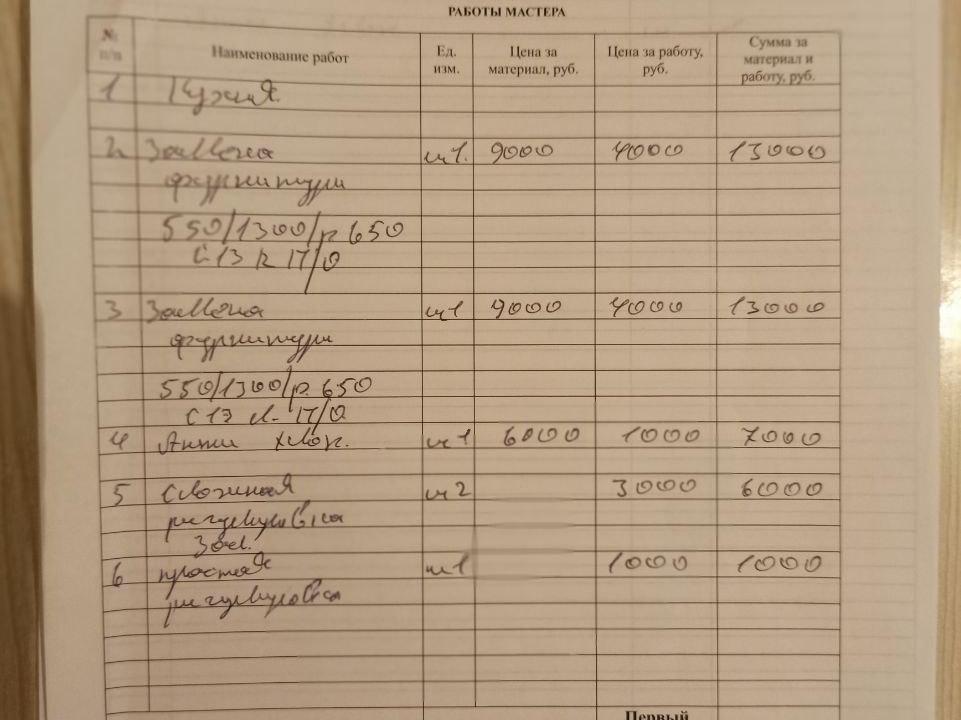 РАБОТЫ МАСТЕРА
№ п/п Наименование работ Ед. изм. Цена за материал, руб. Цена за работу, руб. Сумма за материал и работу, руб.
1 Кухня
2 Замена шт 1. 9000 4000 13000
фурнитуры
550/1300/р 650
С 13 R П/О
3 Замена шт 1 9000 4000 13000
фурнитуры
550/1300/р 650
С 13 П/О
4 Анти хлоп. шт 1 6000 1000 7000
5 Сложная шт 2 3000 6000
регулировка
6 простая шт 1 1000 1000
регулировка
Первый